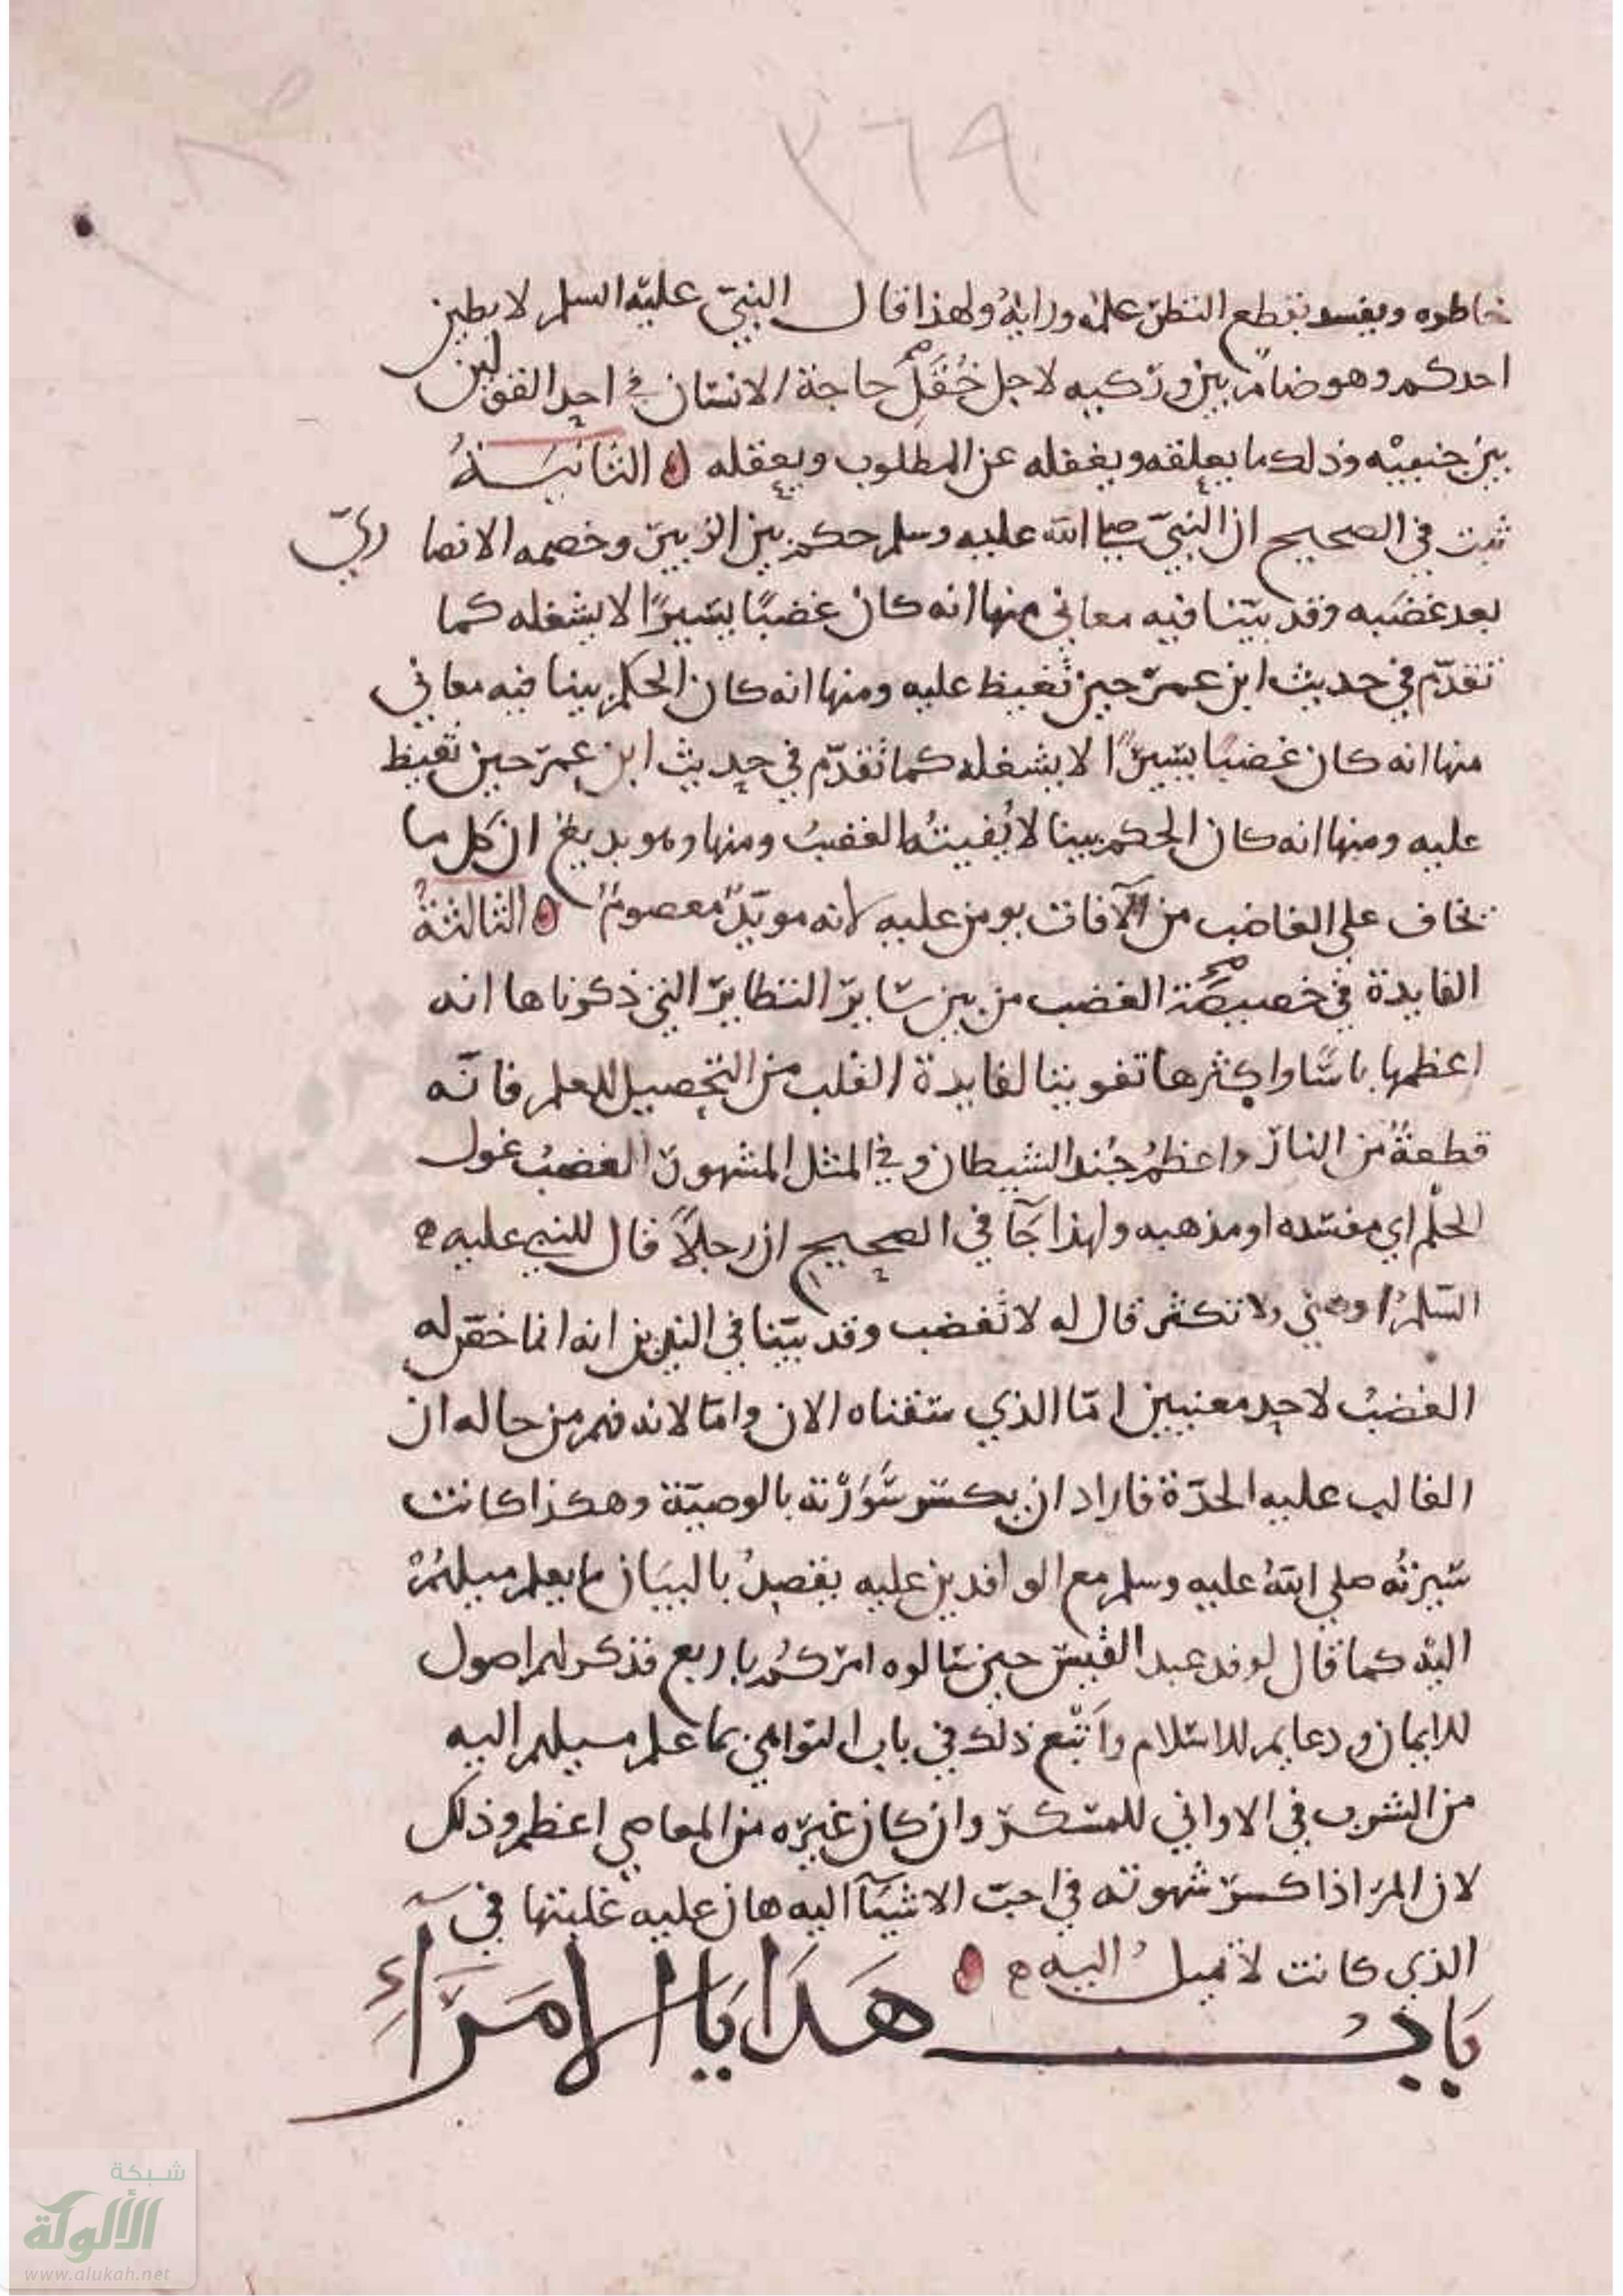 ٣٦٩
خاطره ويفسد بقطع النظر عليه ورايه ولهذا قال النبي عليه السلم لا يصلين
احدكم وهو ضام بين وركيه لاجل حاجة الانسان في احد القولين
بين جنبيه وذلك ما يعلقه ويغفله عن المطلوب ويعقله ٥ الثانية
ثبت في الصحيح ان النبي صلى الله عليه وسلم حكم بين الزبير وخصمه الانصا ري
بعد غضبه وقد بينا فيه معاني منها انه كان غضبا يسيرا لا يشغله كما
تقدم في حديث ابن عمر حين تغيظ عليه ومنها انه كان الحكم بينا فيه معاني
منها انه كان غضبا يسيرا لا يشغله كما تقدم في حديث ابن عمر حين تغيظ
عليه ومنها انه كان الحكم بينا لا يفيته الغضب ومنها وهو بديع ان كل ما
يخاف على الغاضب من الآفات يومن عليه لانه مويد معصوم ٥ الثالثة
الفايدة في خصيصة الغضب من بين ساير النظاير التي ذكرناها انه
اعظمها باسا واكثرها تفويتا لفايدة القلب من التحصيل للعلم فانه
قطعة من النار واعظم جند الشيطان وفي المثل المشهور الغضب غول
الحلم اي مفسده او مذهبه ولهذا جآ في الصحيح ان رجلا قال للنبي عليه
السلم اوصني ولا تكثر قال له لا تغضب وقد بينا في النيرين انه انما خص له
الغضب لاحد معنيين اما الذي سقناه الان واما لانه فهم من حاله ان
الغالب عليه الحدة فاراد ان يكسر سورته بالوصية وهكذا كانت
سيرته صلي الله عليه وسلم مع الوافدين عليه يقصد بالبيان ما يعلم ميلهم
اليه كما قال لوفد عبد القيس حين سالوه امركم باربع فذكر لهم اصول
للايمان ودعايم للاسلام واتبع ذلك في باب النواهي بما علم ميلهم اليه
من الشرب في الاواني للمسكر وان كان غيره من المعاصي اعظم وذلك
لان المر اذا كسر شهوته في احب الاشيآ اليه هان عليه غلبتها في
الذي كانت لا تميل اليه ٥
باب هدايا الامرآء
شبكة
الألوكة
www.alukah.net